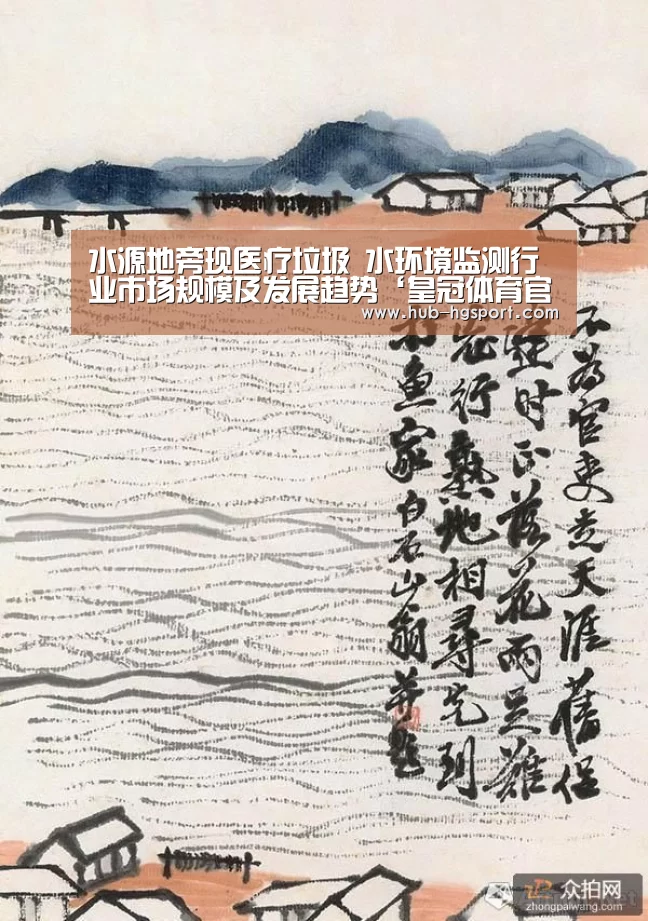 水源地旁现医疗垃圾 水环境监测行
业市场规模及发展趋势‘皇冠体育官
www.hub-hgsport.com
不為官吏走天涯舊侶
逢时正落花雨足難
忘行熟地相尋先到
打魚家白石山翁並題
众拍网
zhongpaiwang.com